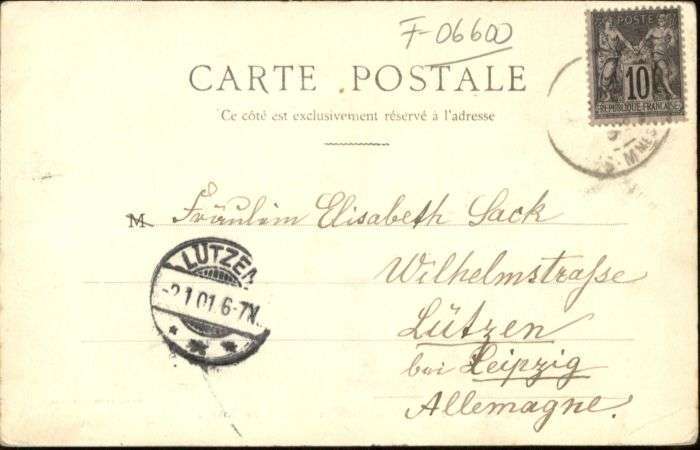 F-06600
POSTE
10
REPUBLIQUE FRANÇAISE
CARTE POSTALE
Ce côté est exclusivement réservé à l'adresse
M Fräulein Elisabeth Sack
Wilhelmstraße
Lützen
bei Leipzig
Allemagne.
LÜTZEN
-2.1.01.6-7N.